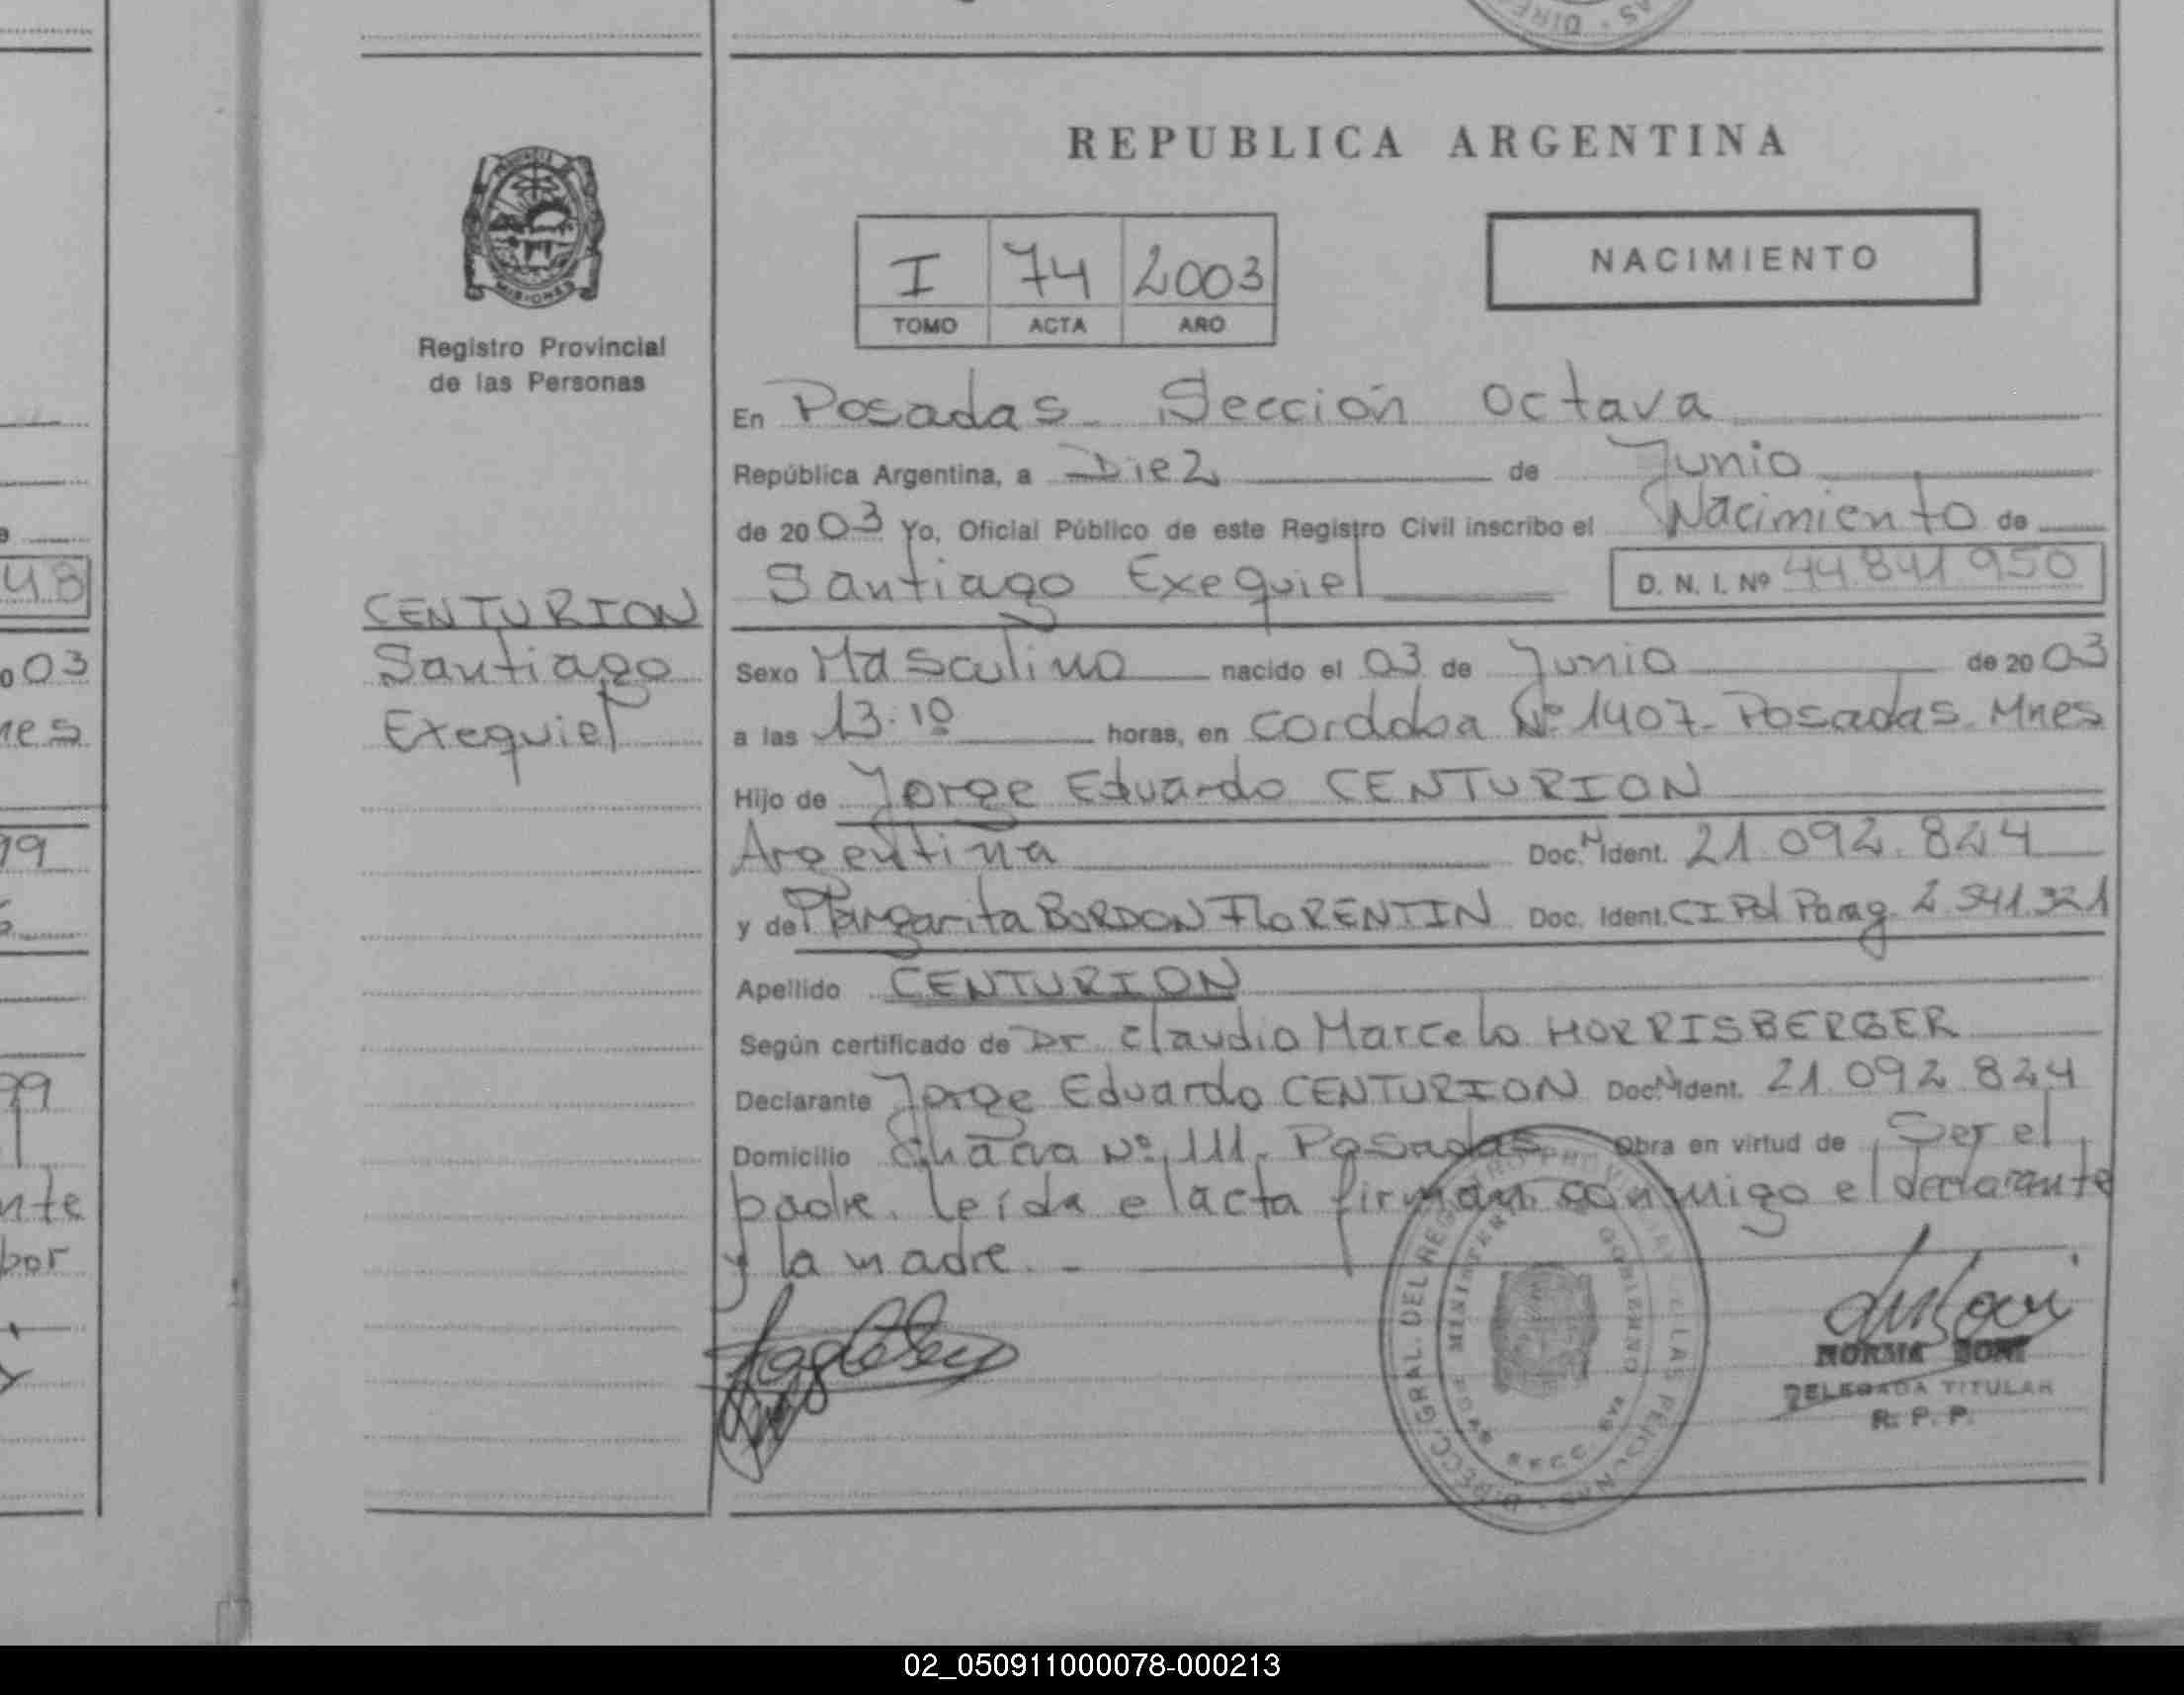 REPUBLICA ARGENTINA
MISIONES
Registro Provincial
de las Personas
I 74 2003
TOMO ACTA AÑO
NACIMIENTO
En Posadas - Sección Octava
República Argentina, a Diez de Junio
de 2003 Yo, Oficial Público de este Registro Civil inscribo el Nacimiento de
Santiago Exequiel D. N. I. Nº 44.841.950
CENTURION
Santiago
Exequiel
Sexo Masculino nacido el 03 de Junio de 2003
a las 13.10 horas, en Cordoba Nº 1407 - Posadas - Mnes
Hijo de Jorge Eduardo CENTURION
Argentina Doc. N Ident. 21.092.824
y de Margarita BORDON FLORENTIN Doc. Ident. CI Pol Parag. 2.941.321
Apellido CENTURION
Según certificado de Dr. Claudio Marcelo HORRISBERGER
Declarante Jorge Eduardo CENTURION Doc. N Ident. 21.092.824
Domicilio Chacra Nº 111 - Posadas Obra en virtud de Ser el
padre. leída el acta firman conmigo el declarante
y la madre. -
DIRECC. GRAL. DEL REGISTRO PROVINCIAL DE LAS PERSONAS
MINISTERIO GOBIERNO
SECC. 8va
NORMA BONI
DELEGADA TITULAR
R. P. P.
48
03
nes
99
99
nte
por
02_050911000078-000213